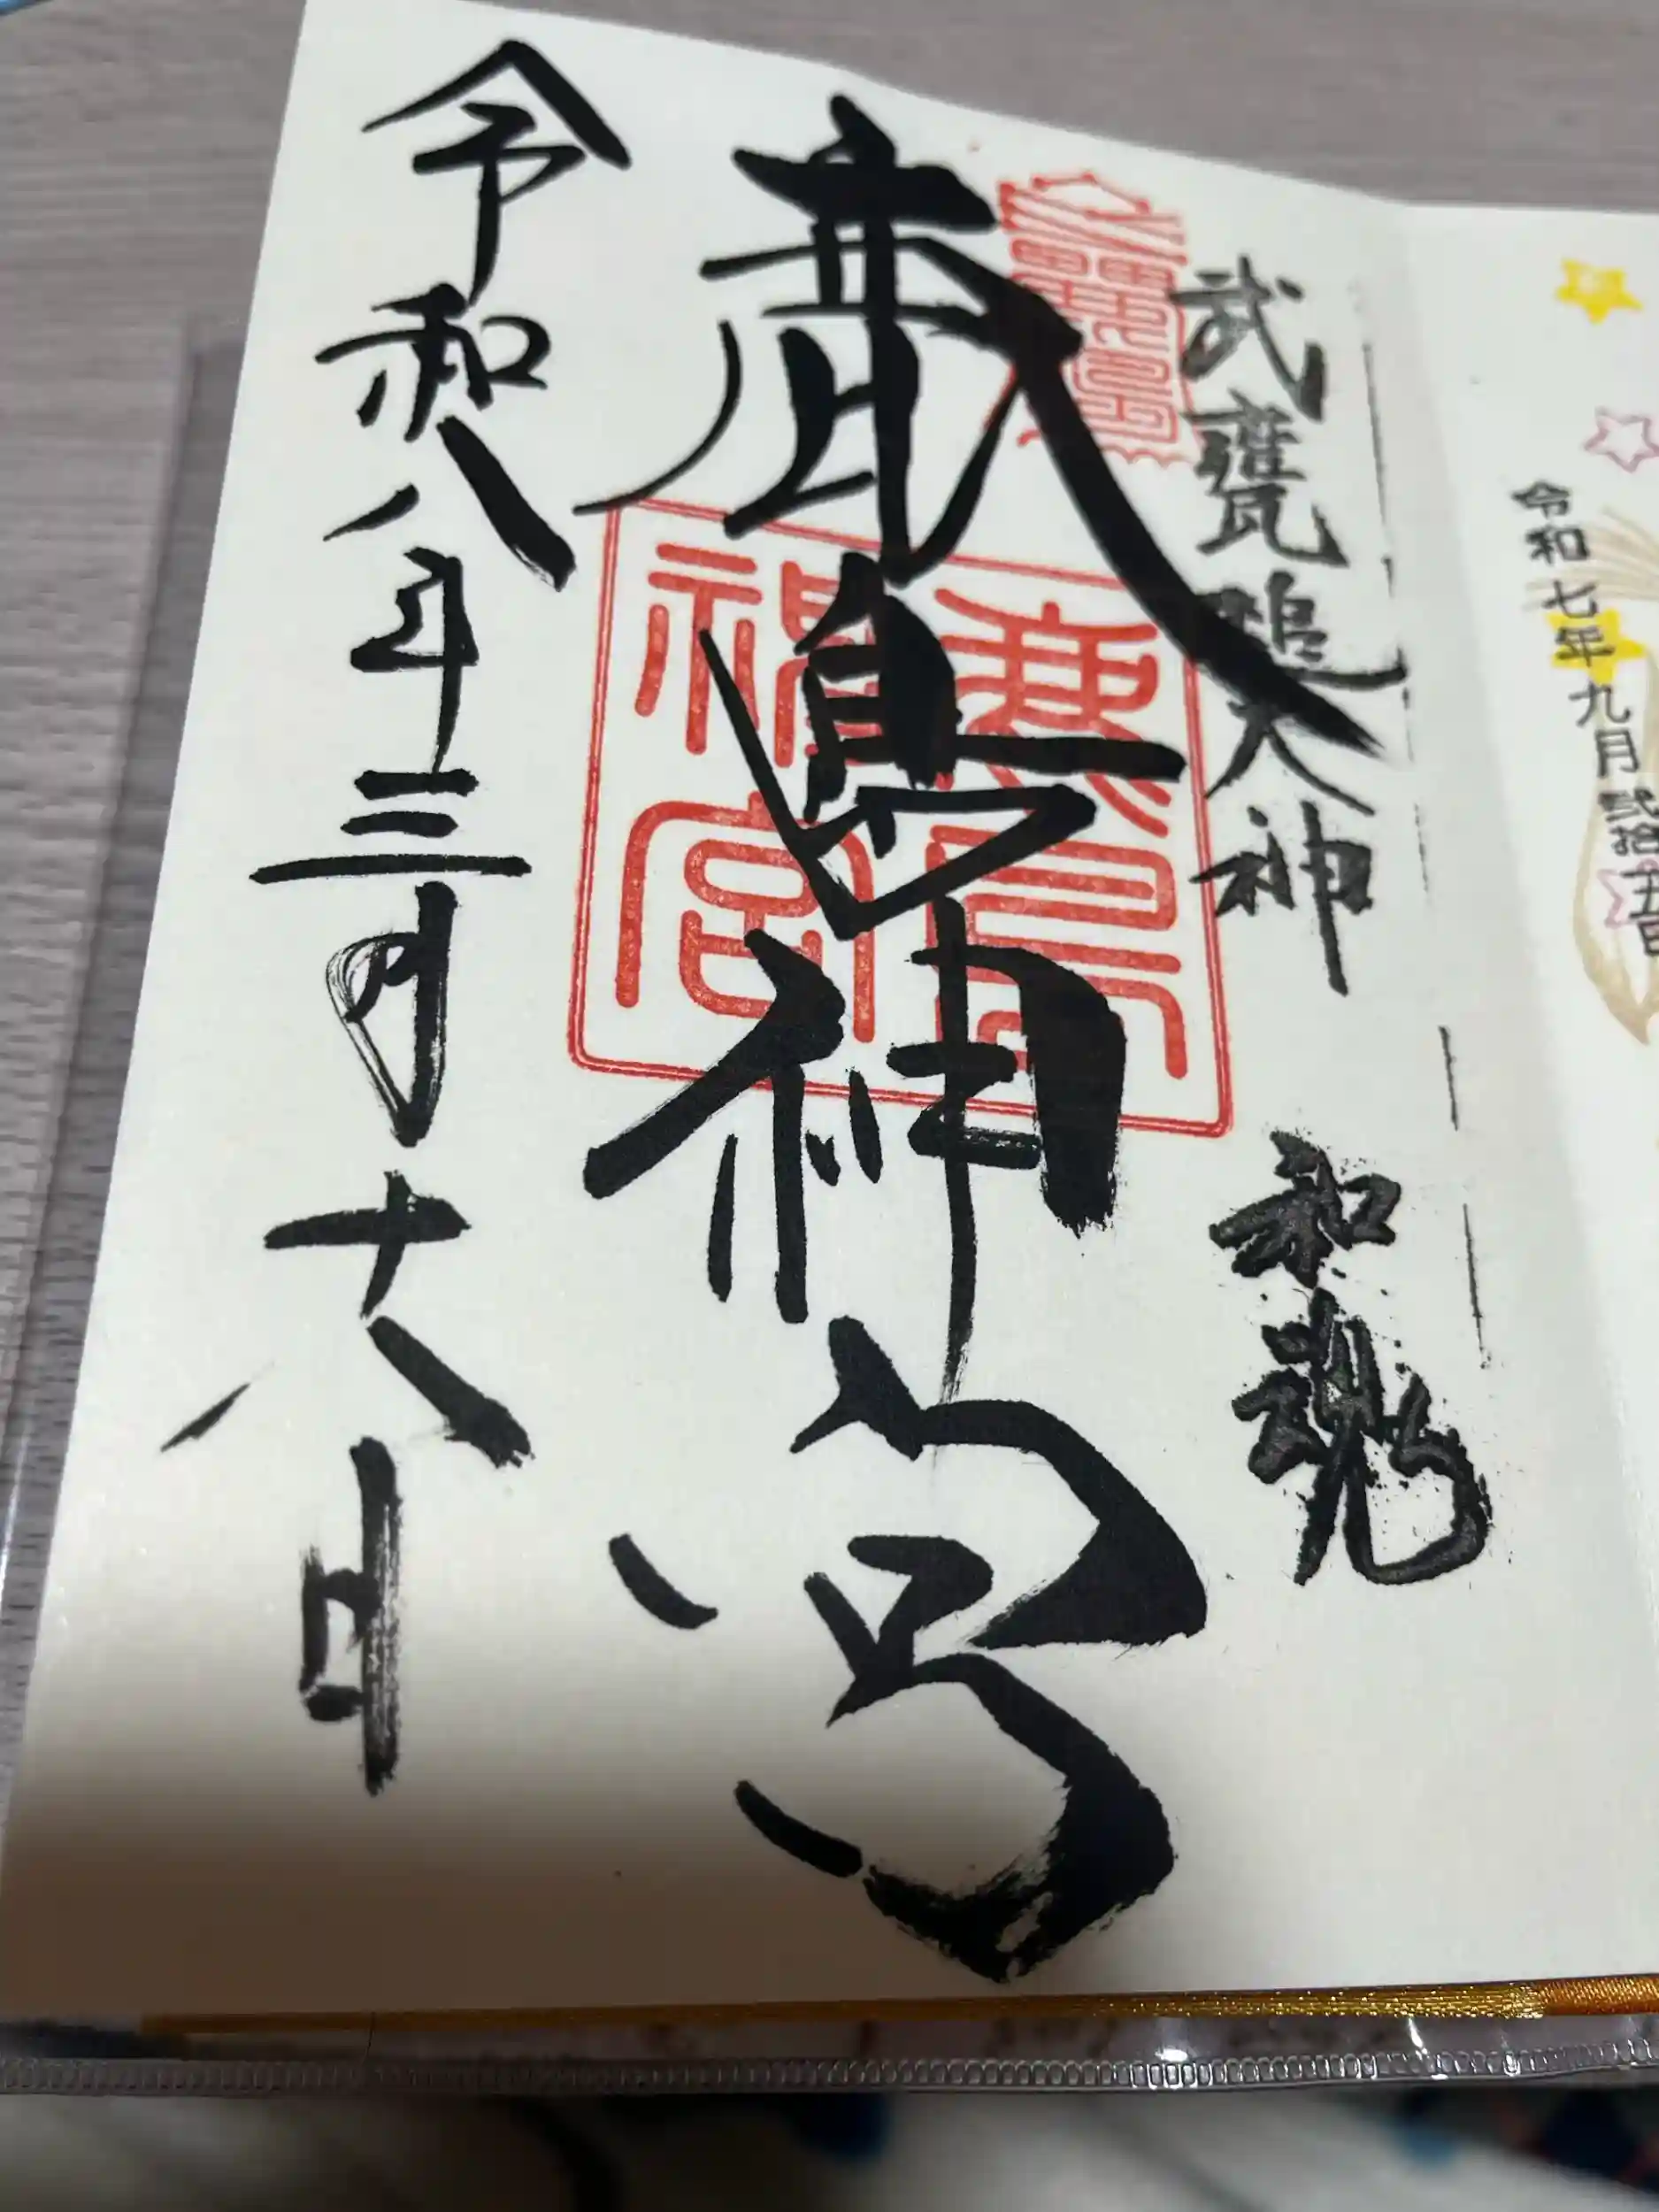 令和七年九月弐拾五日
武甕槌大神 和魂
鹿島神宮
鹿島
神宮
令和八年三月十八日